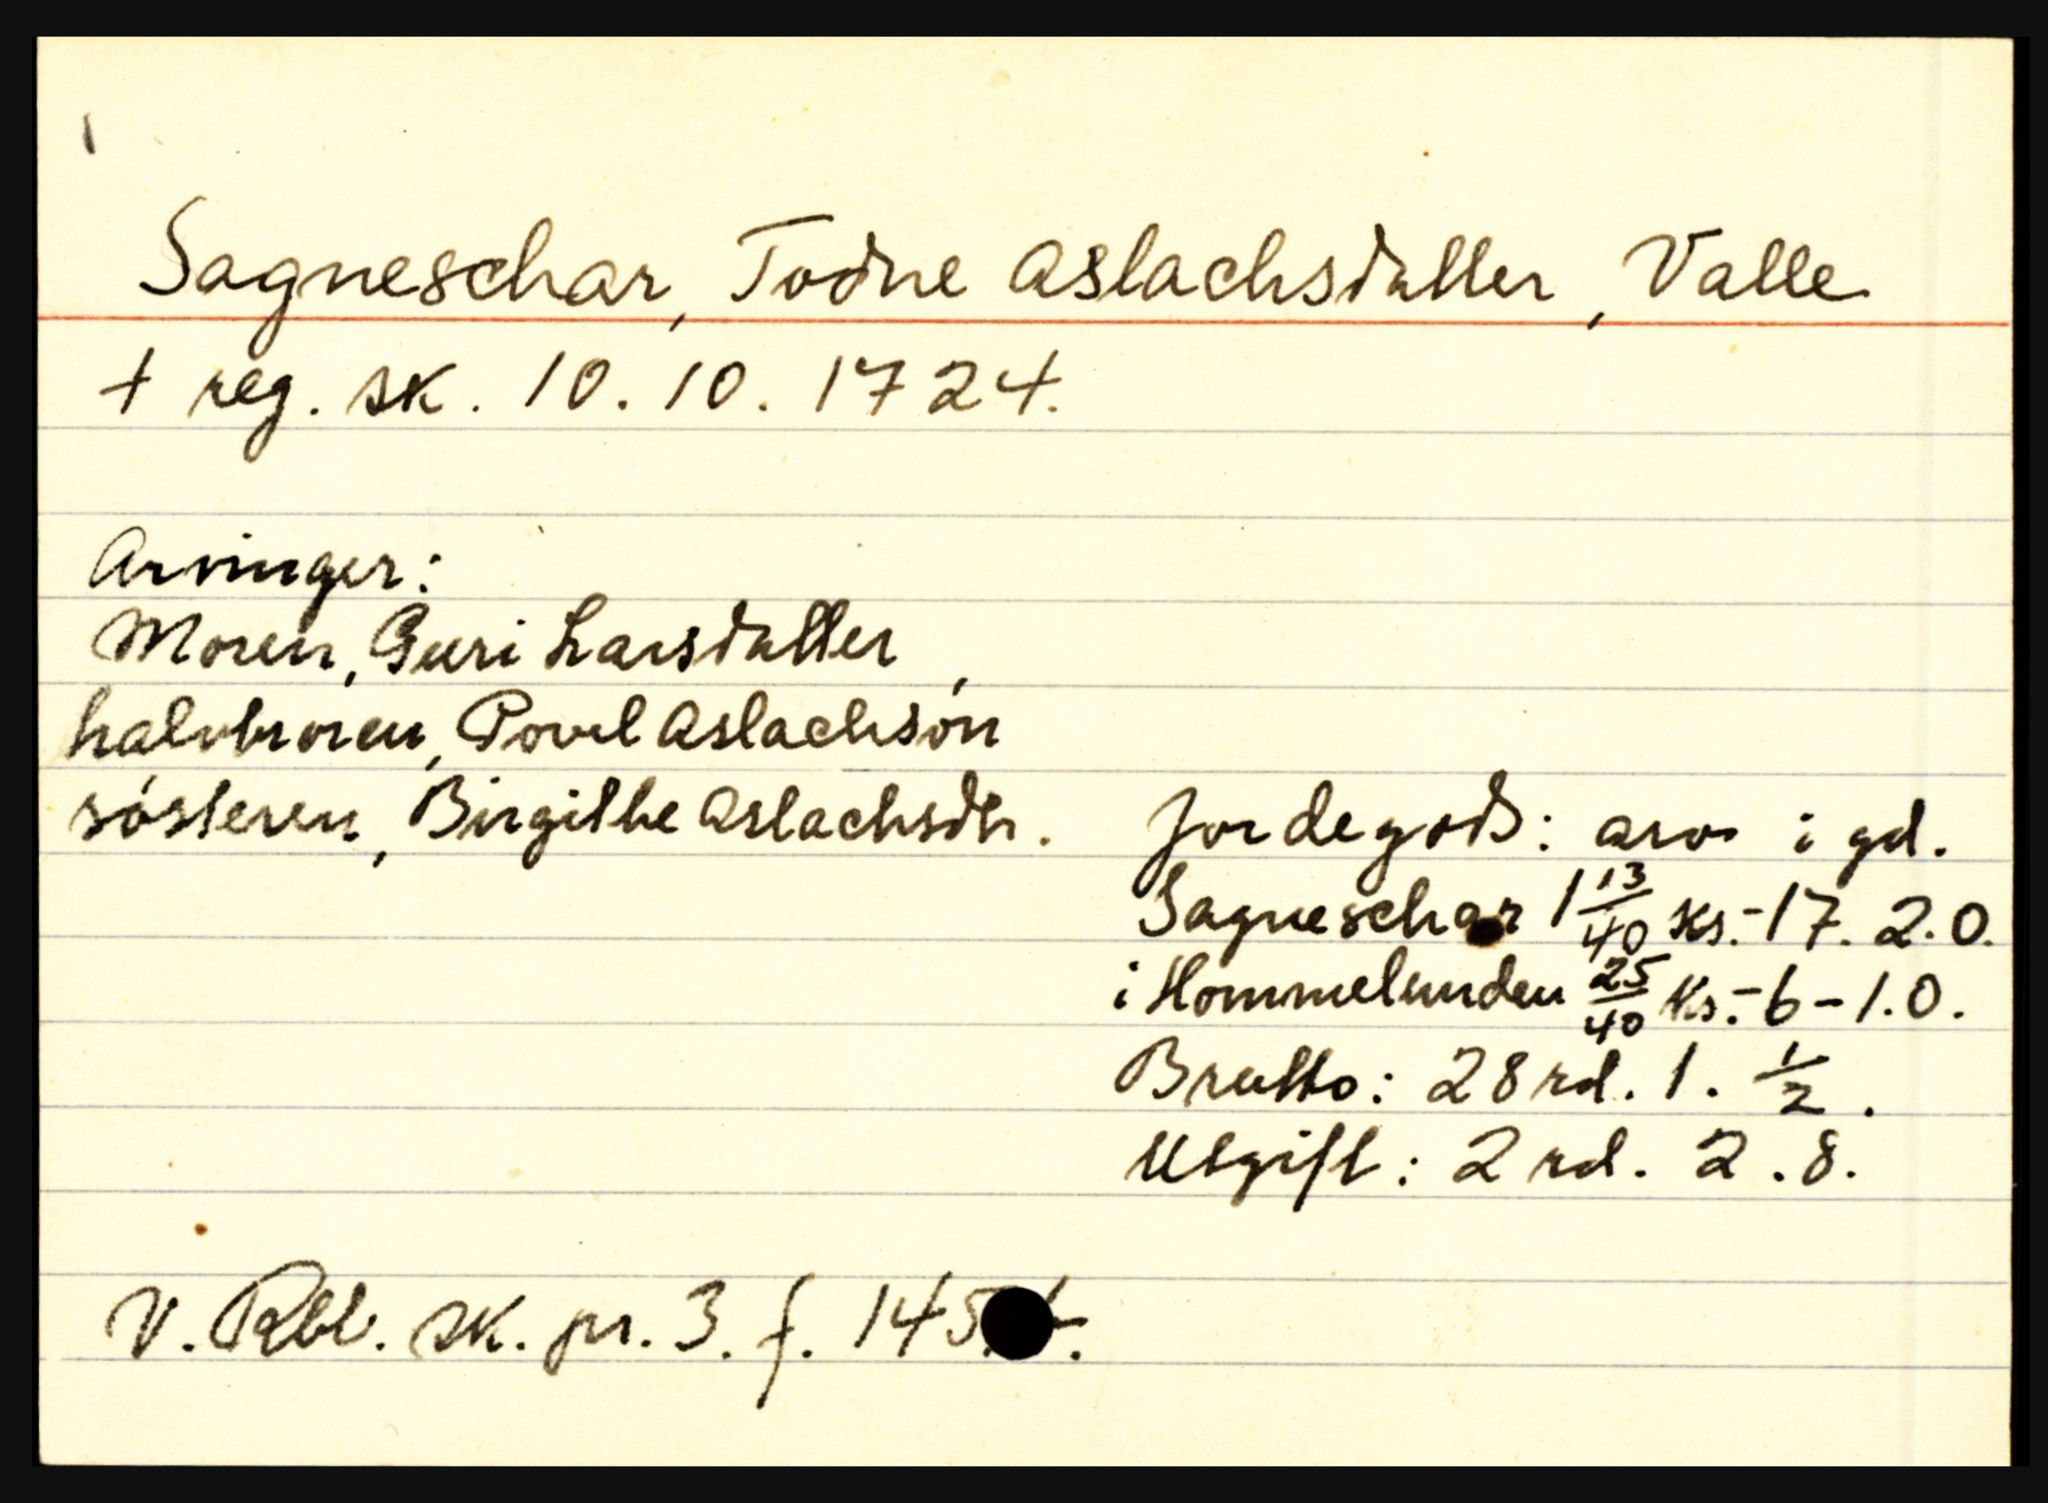 Sagneschar, Todne Aslachsdatter, Valle
+ reg. sk. 10.10.1724.
Arvinger:
Moren, Guri Larsdatter,
halvbroren, Povel Aslachsön
sösteren, Birgithe Aslachsdtr.
Jordegods: arv i gd.
Sagneschar 1 13/40 ks.-17.2.0.
i Hommelunden 25/40 ks.-6-1.0.
Brutto: 28 rd. 1. 1/2.
Utgift: 2 rd. 2.8.
V. Rbl. sk. pr. 3. f. 145